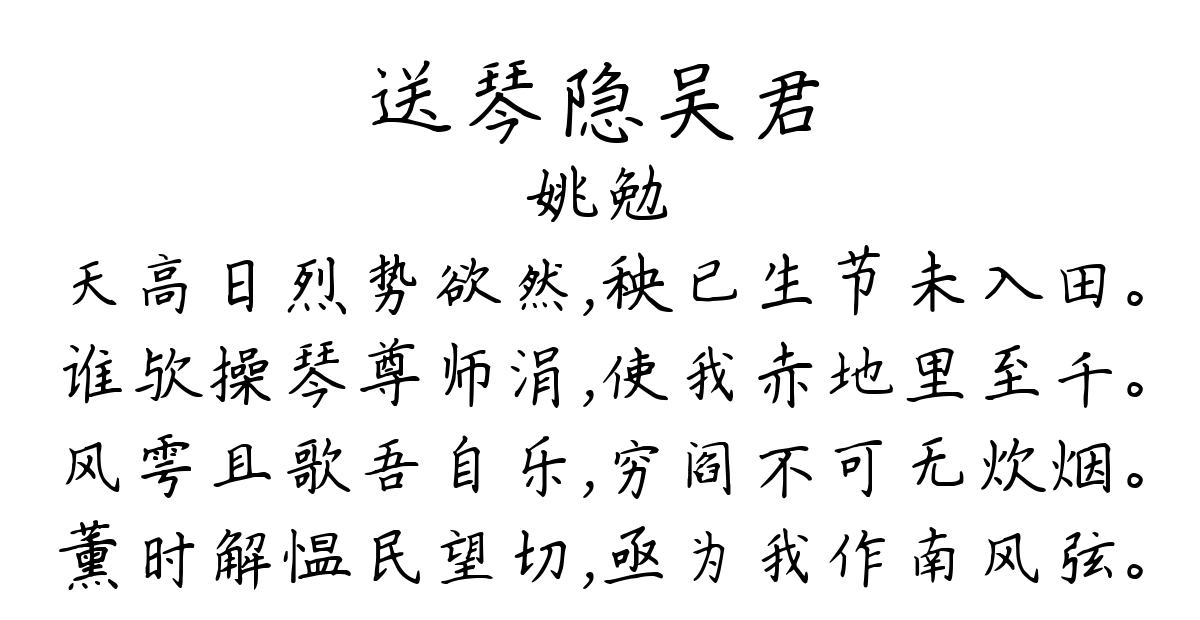 送琴隐吴君
姚勉
天高日烈势欲然,秧已生节未入田。
谁欤操琴尊师涓,使我赤地里至千。
风雩且歌吾自乐,穷阎不可无炊烟。
薰时解愠民望切,亟为我作南风弦。